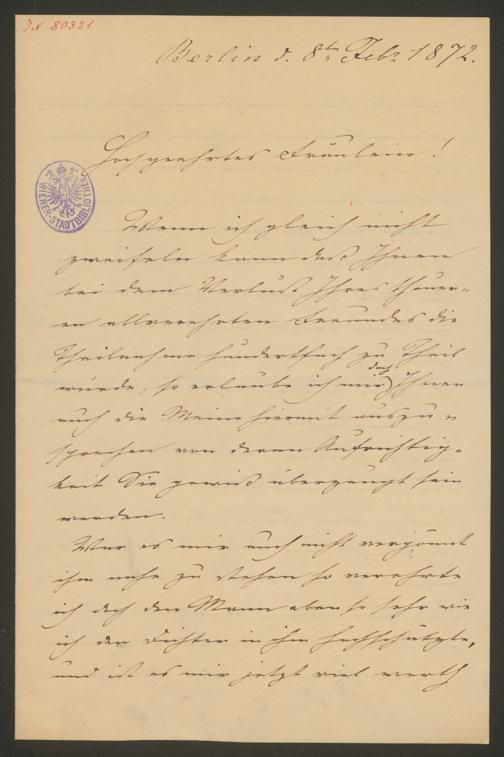 JN 80321
Berlin d. 8ten Febr 1872.
Hochgeehrtes Fräulein!
WIENER STADTBIBLIOTHEK
Wenn ich gleich nicht
zweifeln kann daß Ihnen
bei dem Verlust Ihres theuer-
en allverehrten Freundes die
Theilnahme hundertfach zu Theil
wurde, so erlaube ich mir doch Ihnen
auch die Meine hiermit auszu-
sprechen von deren Aufrichtig-
keit Sie gewiß überzeugt sein
werden.
War es mir auch nicht vergönnt
ihm nahe zu stehen so verehrte
ich doch den Mann eben so sehr wie
ich den Dichter in ihm hochschätzte,
und ist es mir jetzt viel werth